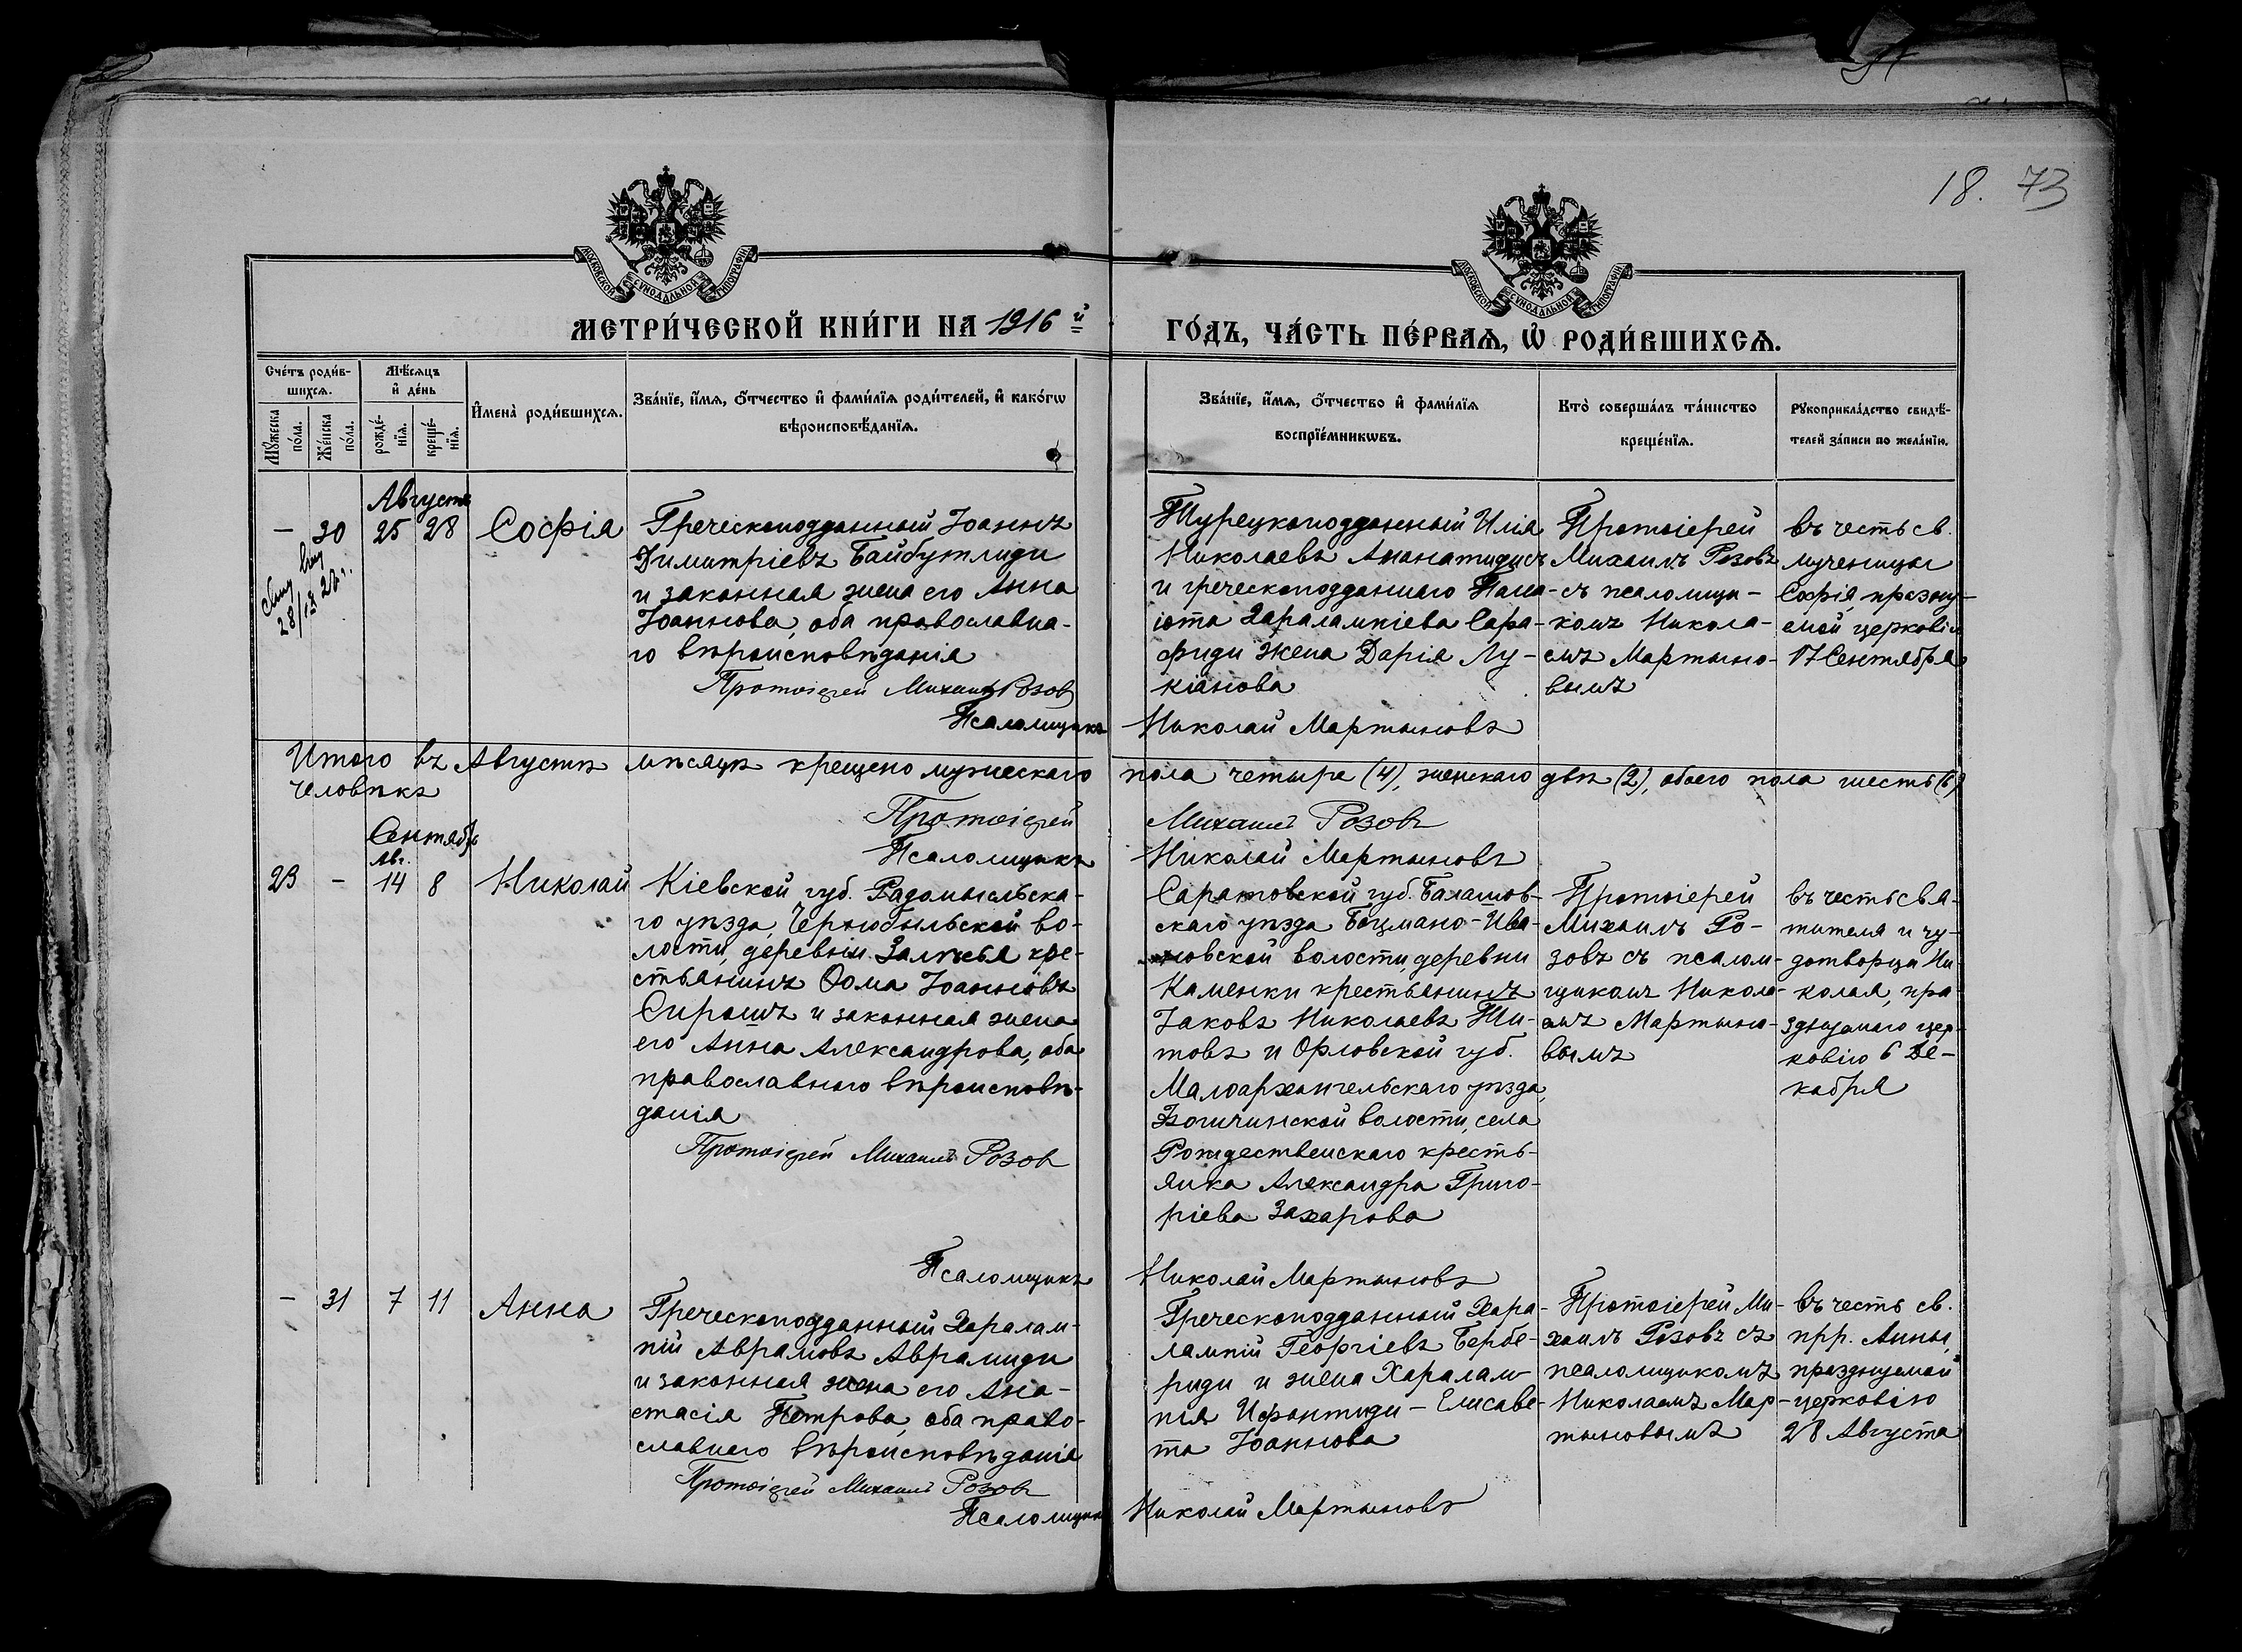 18. 73
МОСКОВСКОЙ СѴНОДАЛЬНОЙ ТИПОГРАФІИ
МОСКОВСКОЙ СѴНОДАЛЬНОЙ ТИПОГРАФІИ
МЕТРИ́ЧЕСКОЙ КНИ́ГИ НА 1916й
ГО́ДЪ, ЧА́СТЬ ПЕ́РВАѦ, Ѡ҆ РОДИ́ВШИХСѦ.
Сче́тъ роди́в-
шихсѧ.
Мꙋ́жеска
по́ла.
Же́нска
по́ла.
Мѣ́сѧцъ
и҆ де́нь
рожде́-
нїѧ.
креще́-
нїѧ.
И҆мена̀ роди́вшихсѧ.
Зва́нїе, и҆́мѧ, ѻ҆́тчество и҆ фами́лїѧ роди́телей, и҆ како́гѡ
вѣроисповѣ́данїѧ.
Зва́нїе, и҆́мѧ, ѻ҆́тчество и҆ фами́лїѧ
воспрїе́мникѡвъ.
Кто̀ соверша́лъ та́инство
креще́нїѧ.
Рꙋкоприкла́дство свидѣ́-
телей за́писи по жела́нїю.
Августъ
— 30 25 28 Софія
28/IX 22 г.
Греческоподданный Іоаннъ
Димитріевъ Байбутлиди
и законная жена его Анна
Іоаннова, оба православна-
го вѣроисповѣданія
Протоіерей Михаилъ Розов
Псаломщикъ
Турецкоподданный Илія
Николаевъ Ананатидисъ
и греческоподданнаго Пана-
іота Харалампіева Сара-
фиди жена Дарія Лу-
кіанова
Николай Мартыновъ
Протоіерей
Михаилъ Розовъ
съ псаломщи-
комъ Никола-
емъ Мартыно-
вымъ
въ честь св.
мученицы
Софіи, празну-
емой церковію
17 Сентября
Итого въ Августѣ мѣсяцѣ крещено мужескаго пола четыре (4), женскаго двѣ (2), обоего пола шесть (6)
человѣкъ
Протоіерей Михаилъ Розовъ
Псаломщикъ Николай Мартыновъ
Сентябрь
Авг.
23 — 14 8 Николай
Кіевской губ. Радомысльска-
го уѣзда, Чернобыльской во-
лости, деревни Залѣсья кре-
стьянинъ Ѳома Іоанновъ
Сирошъ и законная жена
его Анна Александрова, оба
православнаго вѣроисповѣ-
данія
Протоіерей Михаилъ Розов
Псаломщикъ
Саратовской губ. Балашов-
скаго уѣзда Боцмано-Ива-
новской волости, деревни
Каменки крестьянинъ
Іаковъ Николаевъ Ти-
товъ и Орловской губ.
Малоархангельскаго уѣзда,
волости, села
Рождественскаго кресть-
янка Александра Григо-
ріева Захарова
Николай Мартыновъ
Протоіерей
Михаилъ Ро-
зовъ съ псалом-
щикомъ Никола-
емъ Мартыно-
вымъ
въ честь свя-
тителя и чу-
дотворца Ни-
колая, пра-
зднуемаго цер-
ковію 6 Де-
кабря
— 31 7 11 Анна
Греческоподданный Харалам-
пій Аврамовъ Аврамиди
и законная жена его Ана-
стасія Петрова, оба право-
славнаго вѣроисповѣданія
Протоіерей Михаилъ Розовъ
Псаломщикъ
Греческоподданный Хара-
лампій Георгіевъ Бербе-
риди и жена Харалам-
пія Ифантиди — Елисаве-
та Іоаннова
Николай Мартыновъ
Протоіерей Ми-
хаилъ Розовъ съ
псаломщикомъ
Николаемъ Мар-
тыновымъ
въ честь св.
прр. Анны,
празднуемой
церковію
28 Августа